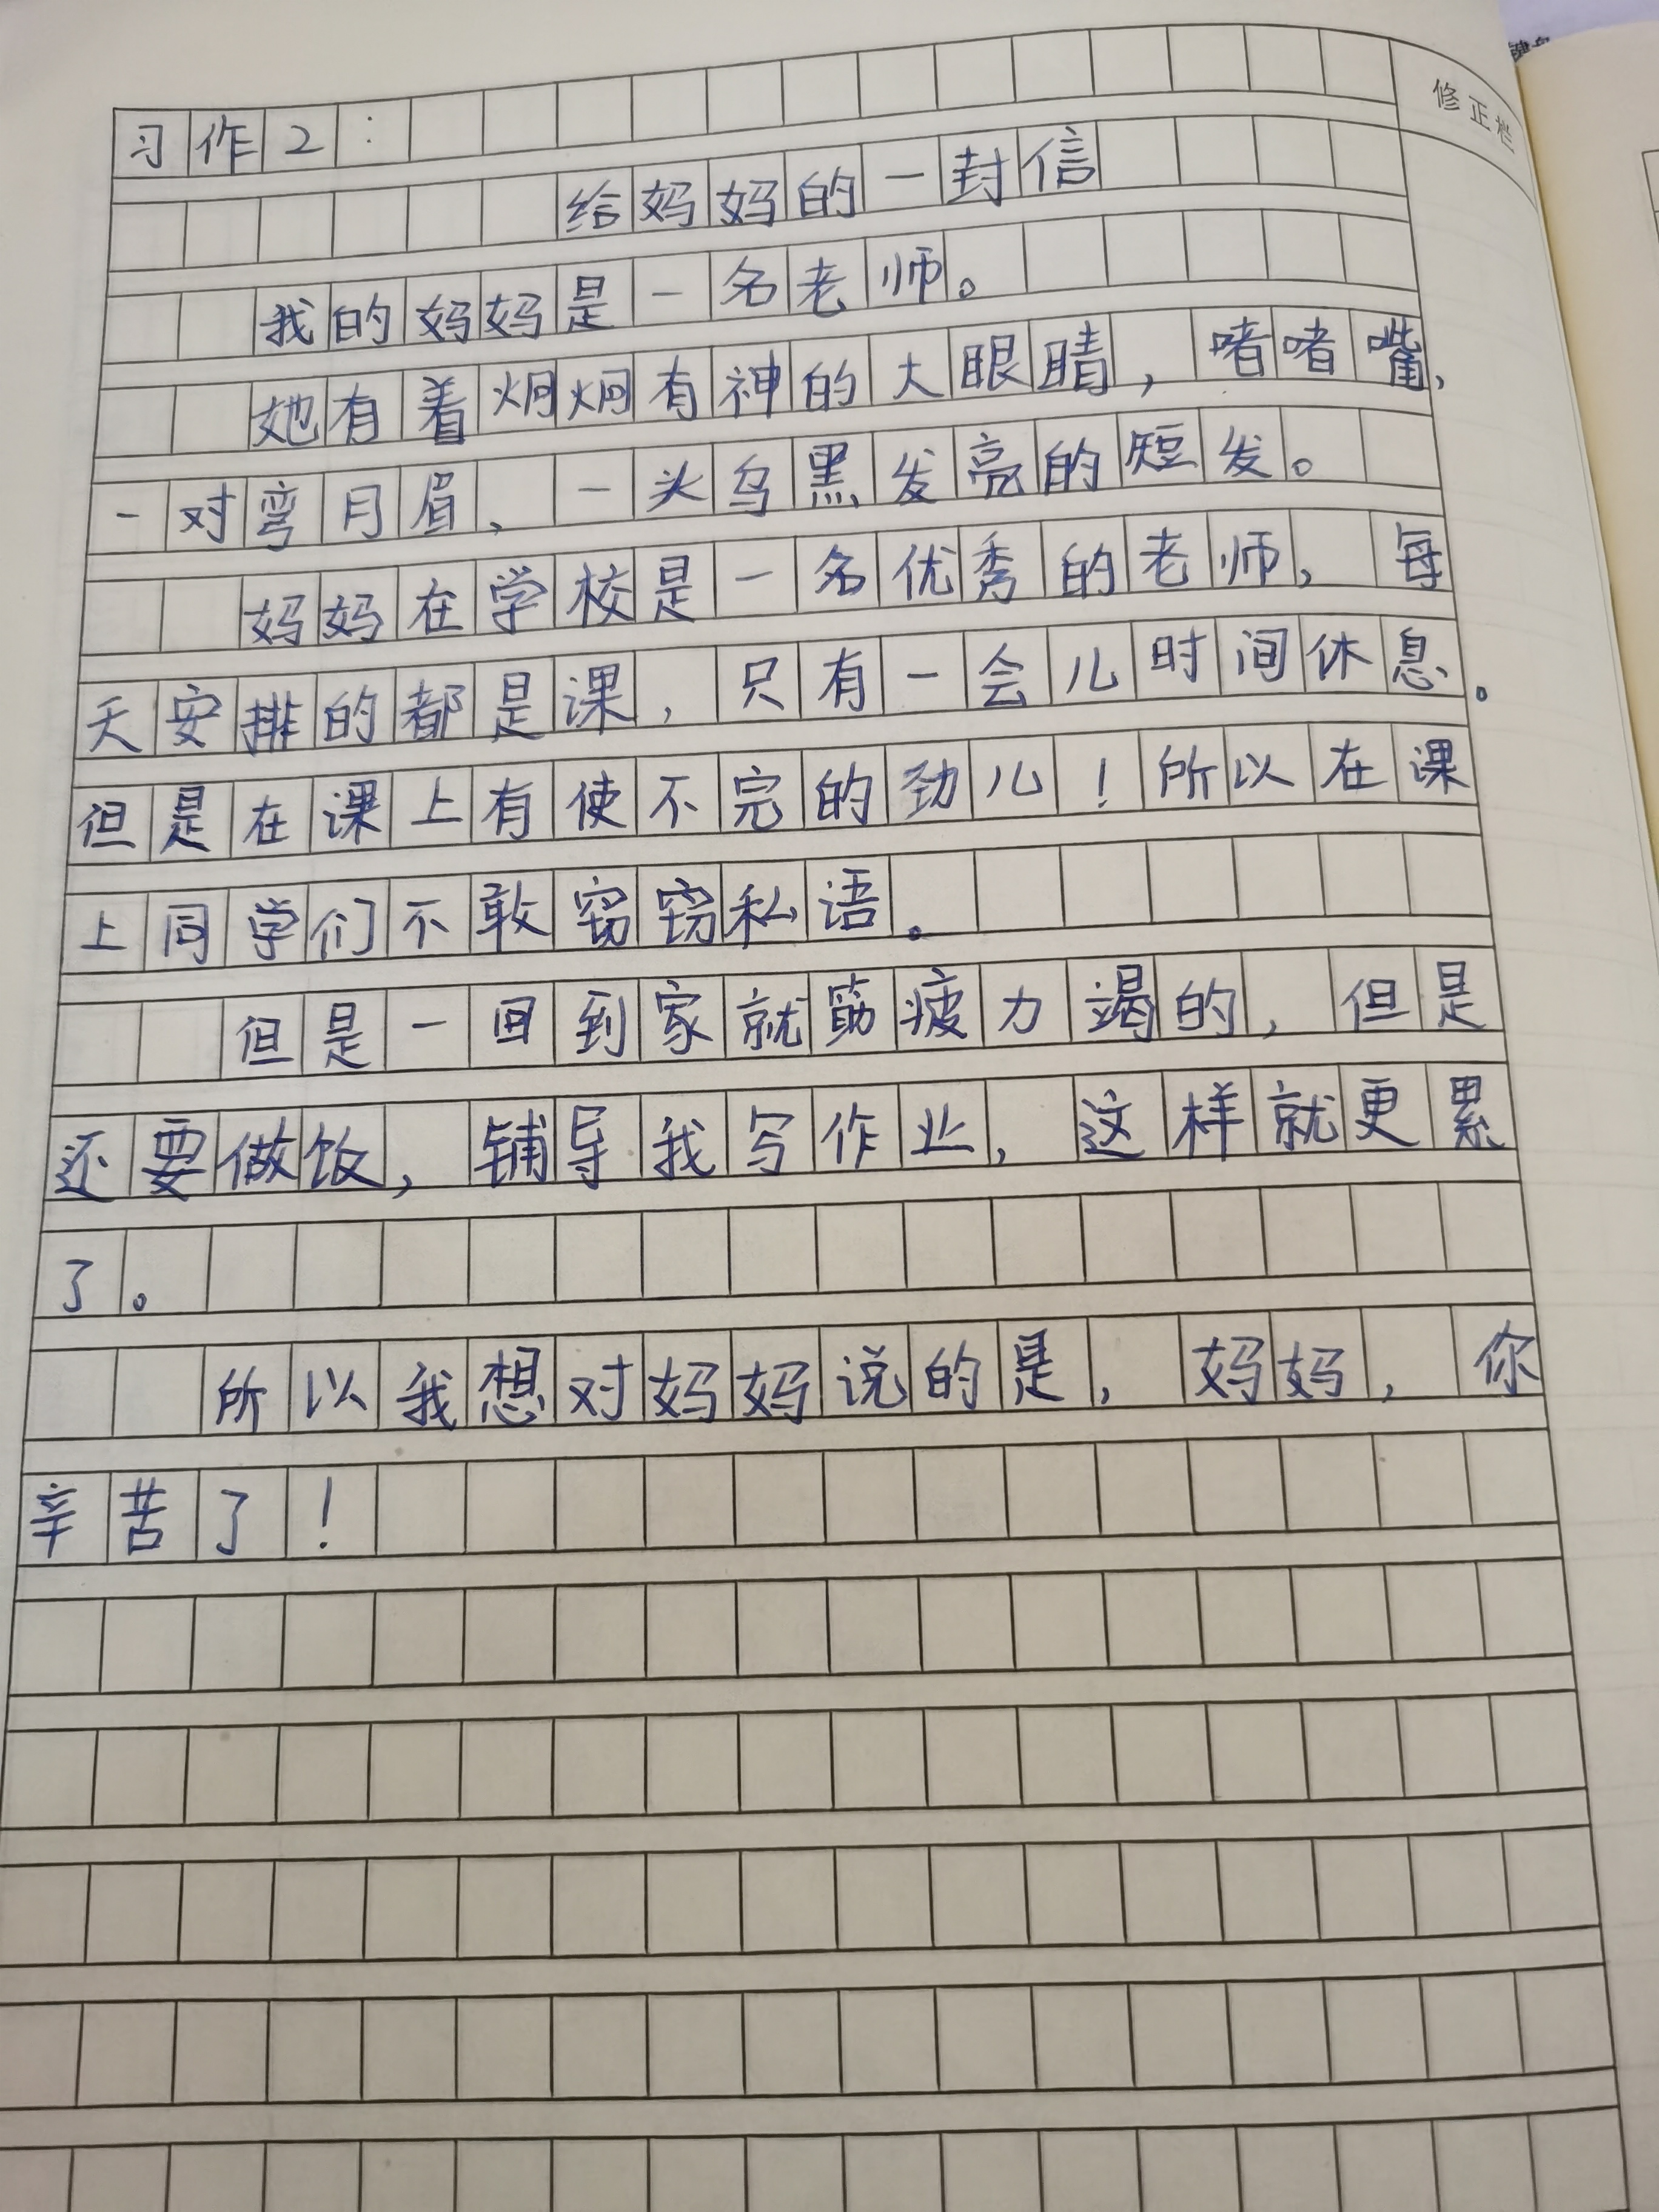 修正栏
习作2：
给妈妈的一封信
我的妈妈是一名老师。
她有着炯炯有神的大眼睛，啫啫嘴，
一对弯月眉、一头乌黑发亮的短发。
妈妈在学校是一名优秀的老师，每
天安排的都是课，只有一会儿时间休息。
但是在课上有使不完的劲儿！所以在课
上同学们不敢窃窃私语。
但是一回到家就筋疲力竭的，但是
还要做饭，辅导我写作业，这样就更累
了。
所以我想对妈妈说的是，妈妈，你
辛苦了！